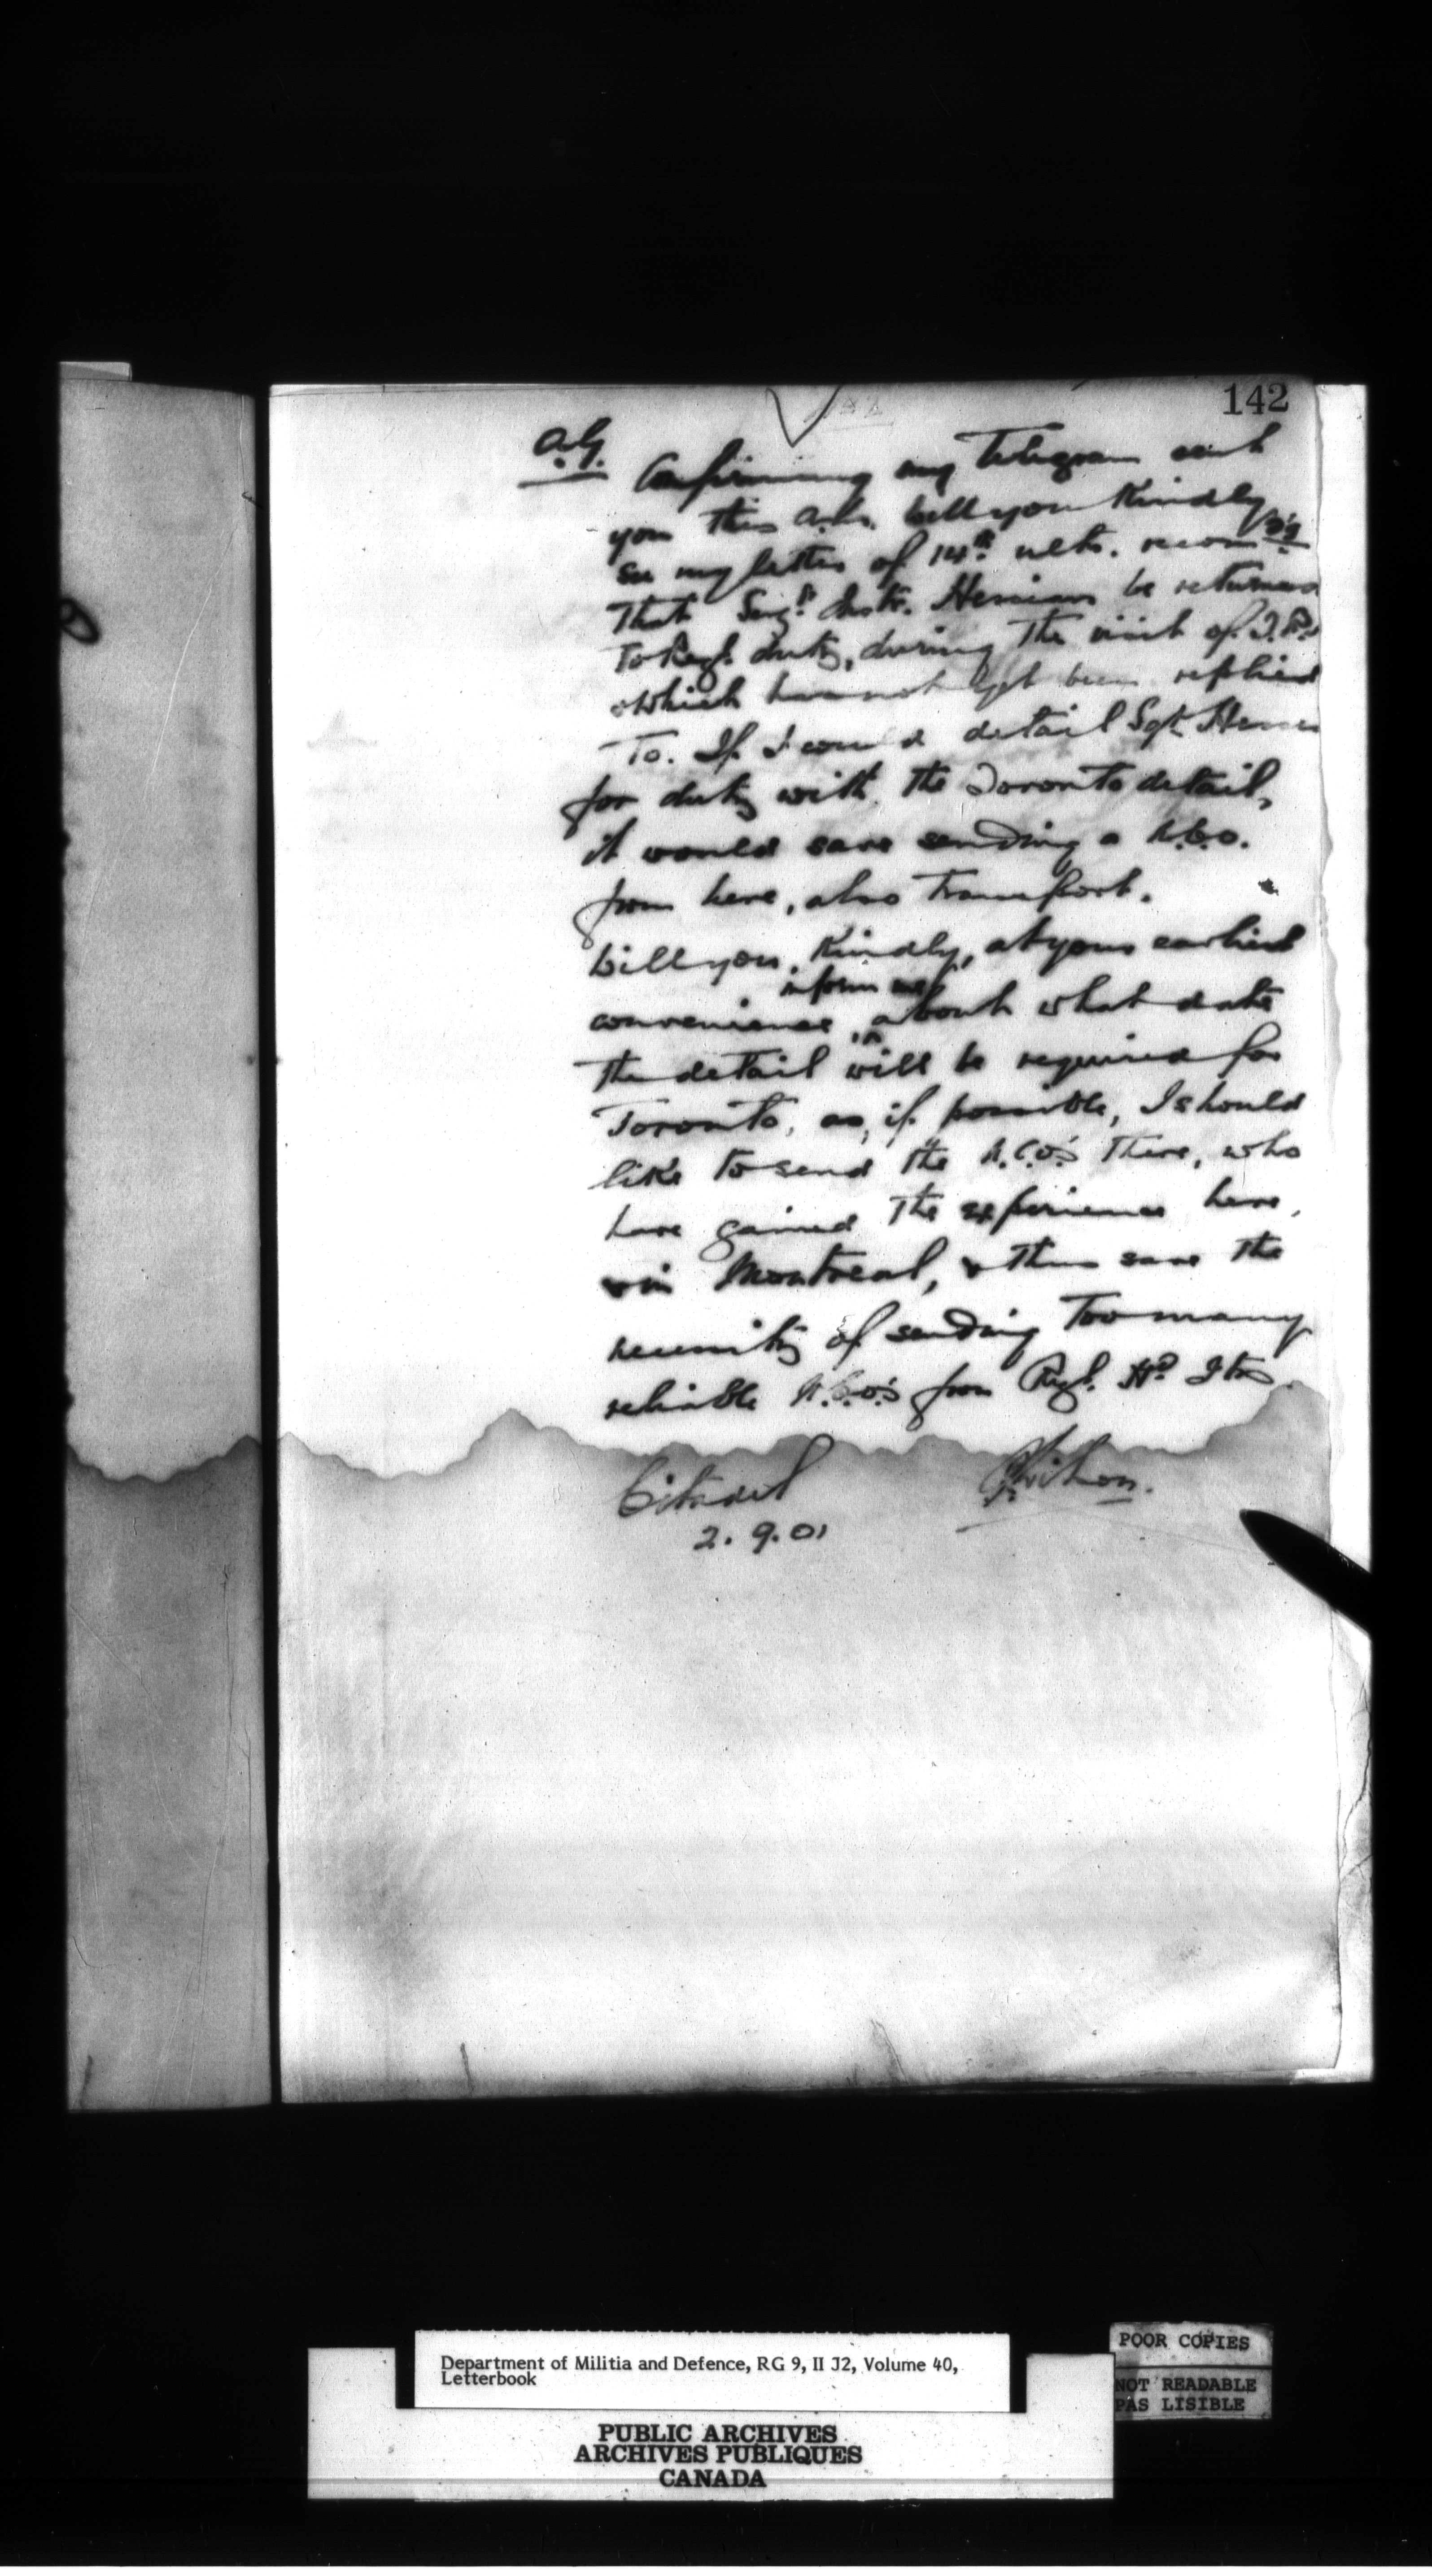 142
A.G.
Confirming my Telegram sent
you this a.m. Will you Kindly
see my letter of 14th ulto. recom'd'g
That Sergt. Instr. be returned
To Regl. duty, during The visit of
which has not yet been replied
To. If I could detail Sgt
for duty with The Toronto detail,
it would save sending a N.C.O.
from here, also Transport.
Will you, Kindly, at your earliest
inform me
convenience, about what date
The detail will be required for
Toronto, as, if possible, I should
like To send The N.C.O's There, who
have gained The experience here,
in Montreal, & Thus save The
necessity of sending Too many
reliable N.C.O's from Regl. Hd
Citadel
2.9.01
Department of Militia and Defence, RG 9, II J2, Volume 40,
Letterbook
PUBLIC ARCHIVES
ARCHIVES PUBLIQUES
CANADA
POOR COPIES
NOT READABLE
PAS LISIBLE